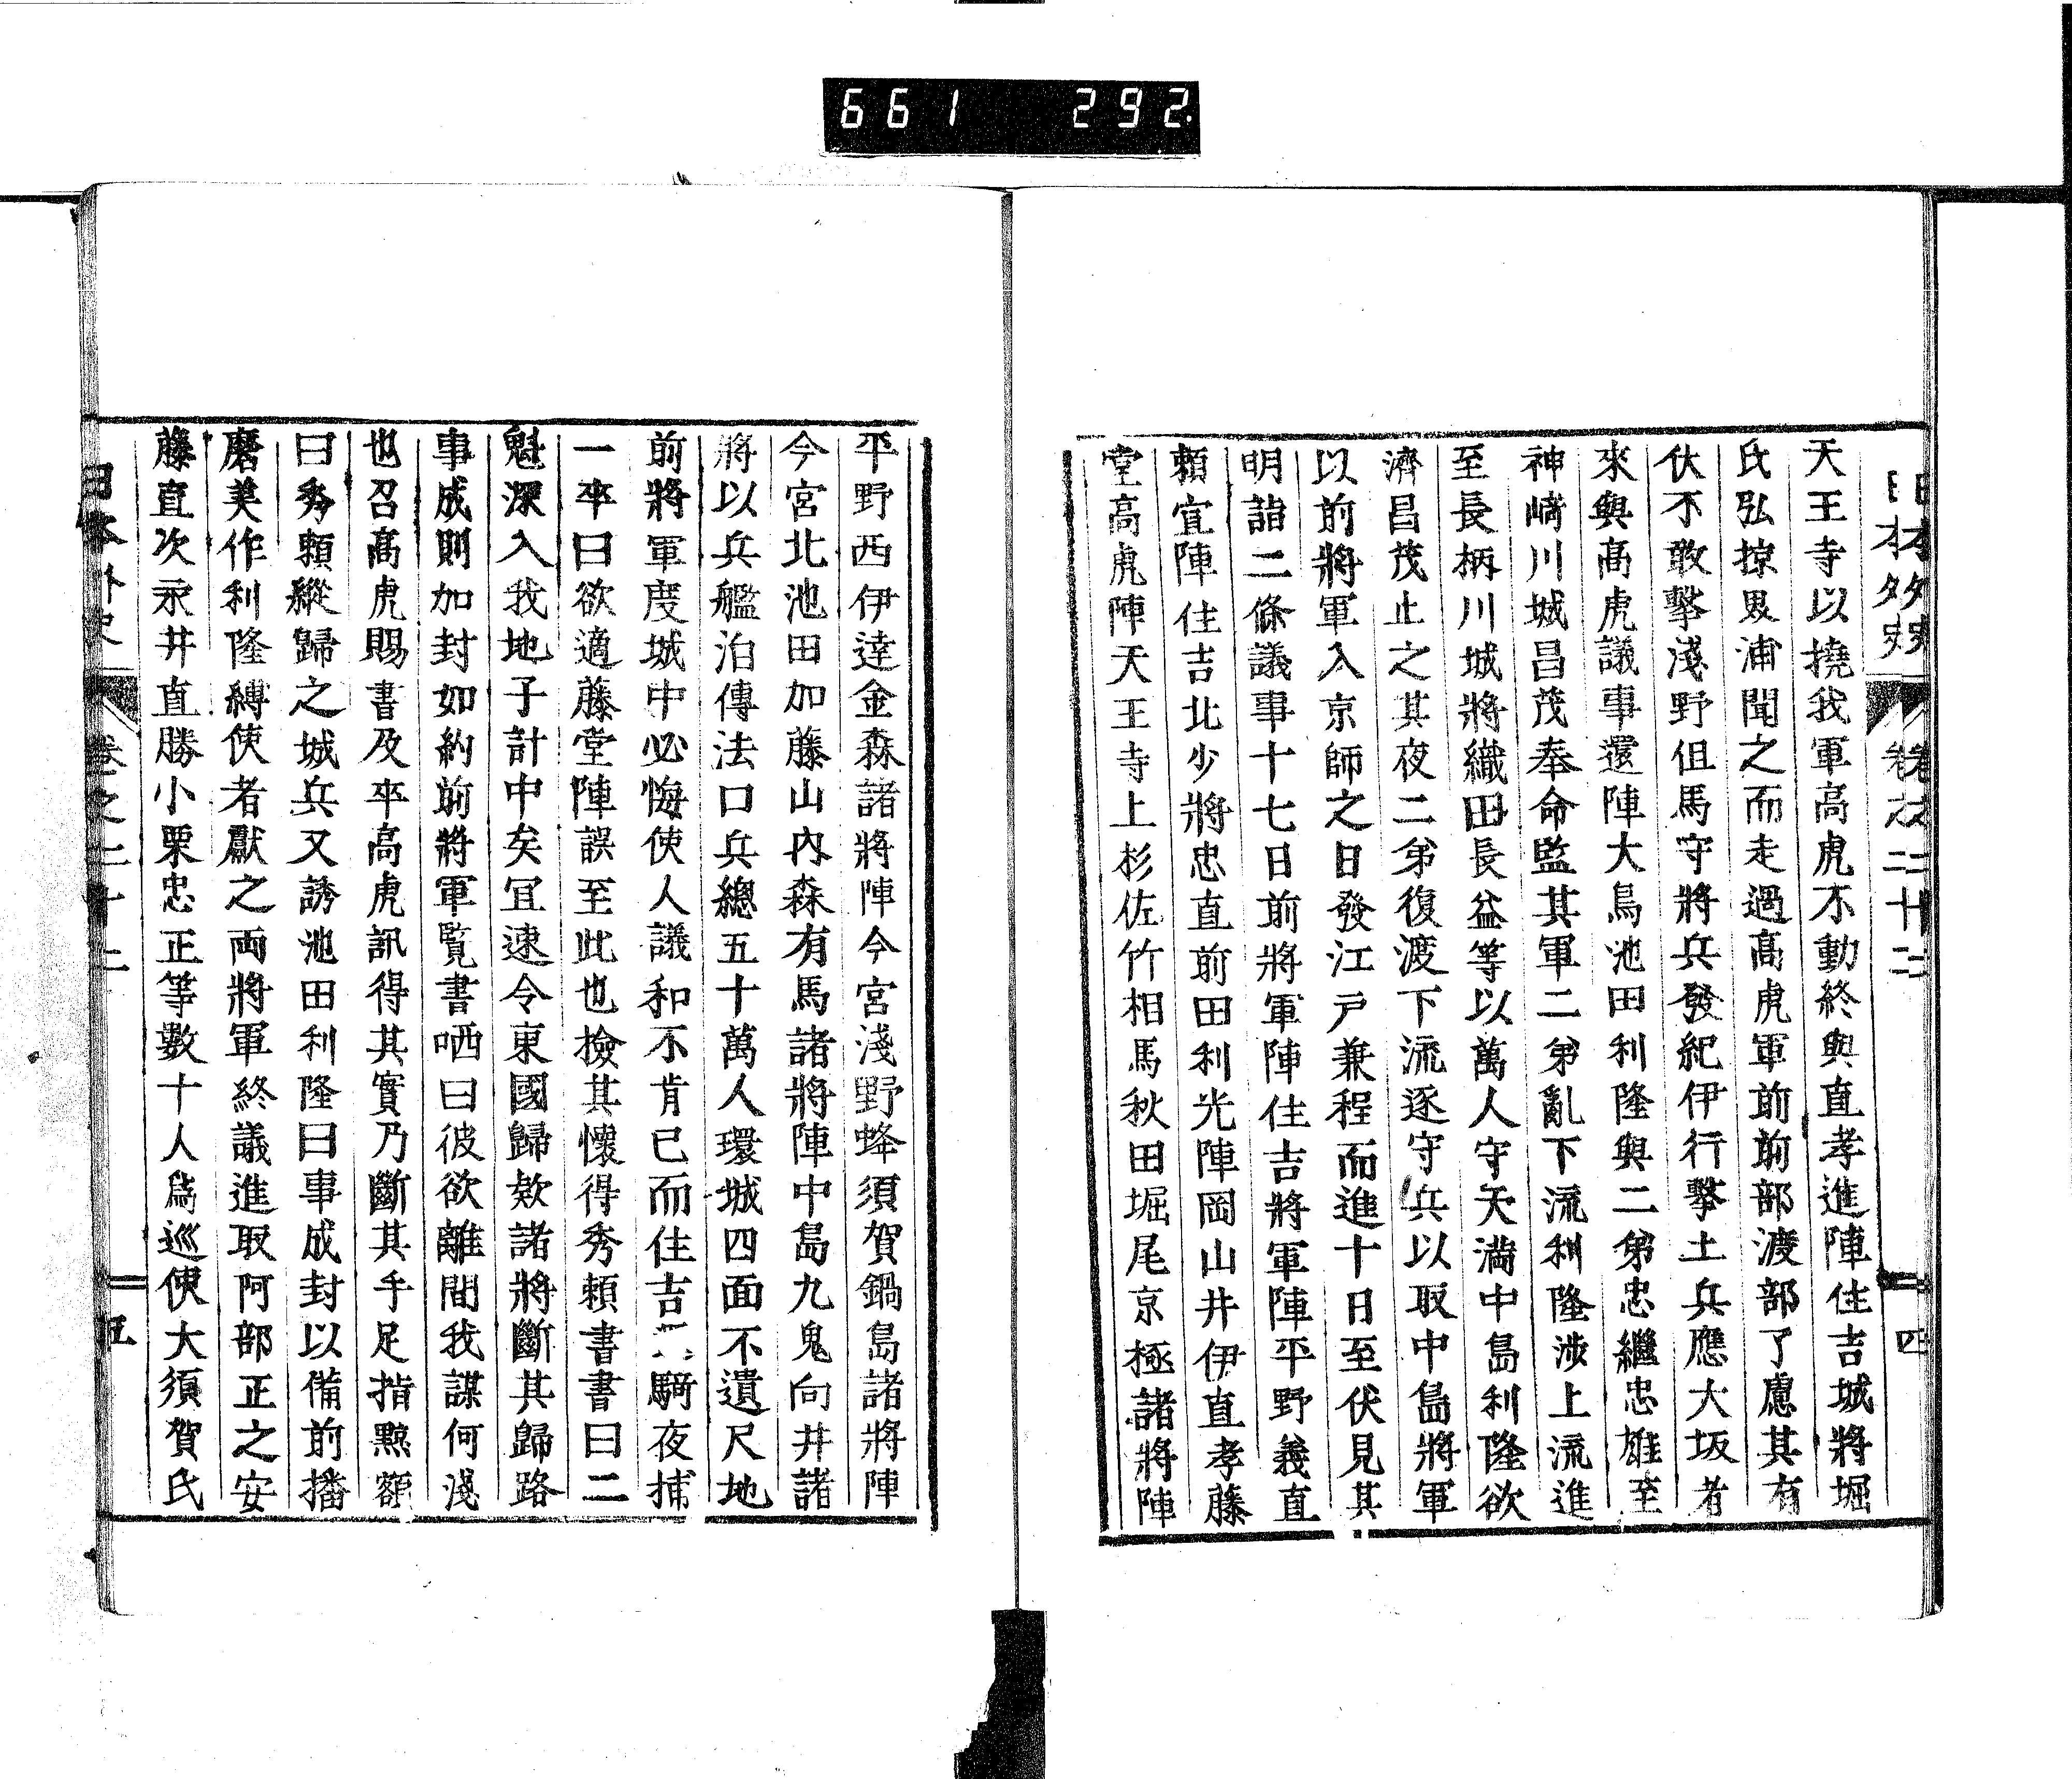 661 292
日本外史 卷之二十二 四
天王寺以撓我軍高虎不動終與直孝進陣住吉城將堀
氏弘掠畏浦聞之而走過高虎軍前前部渡部了慮其有
伏不敢擊淺野但馬守將兵發紀伊行擊土兵應大坂者
來與高虎議事還陣大鳥池田利隆與二弟忠繼忠雄至
神崎川城昌茂奉命監其軍二弟亂下流利隆涉上流進
至長柄川城將織田長益等以萬人守天滿中島利隆欲
濟昌茂止之其夜二弟復渡下流逐守兵以取中島將軍
以前將軍入京師之日發江戶兼程而進十日至伏見其
明詣二條議事十七日前將軍陣住吉將軍陣平野義直
賴宣陣住吉北少將忠直前田利光陣岡山井伊直孝藤
堂高虎陣天王寺上杉佐竹相馬秋田堀尾京極諸將陣
平野西伊達金森諸將陣今宮淺野蜂須賀鍋島諸將陣
今宮北池田加藤山內森有馬諸將陣中島九鬼向井諸
將以兵艦泊傳法口兵總五十萬人環城四面不遺尺地
前將軍度城中必悔使人議和不肯已而住吉騎夜捕
一卒曰欲適藤堂陣誤至此也撿其懷得秀賴書書曰二
魁深入我地子計中矣宜速令東國歸欵諸將斷其歸路
事成則加封如約前將軍覽書哂曰彼欲離間我謀何淺
也召高虎賜書及卒高虎訊得其實乃斷其手足指黥額
曰秀賴縱歸之城兵又誘池田利隆曰事成封以備前播
磨美作利隆縛使者獻之両將軍終議進取阿部正之安
藤直次永井直勝小栗忠正等數十人爲巡使大須賀氏
日本外史 卷之二十二 五